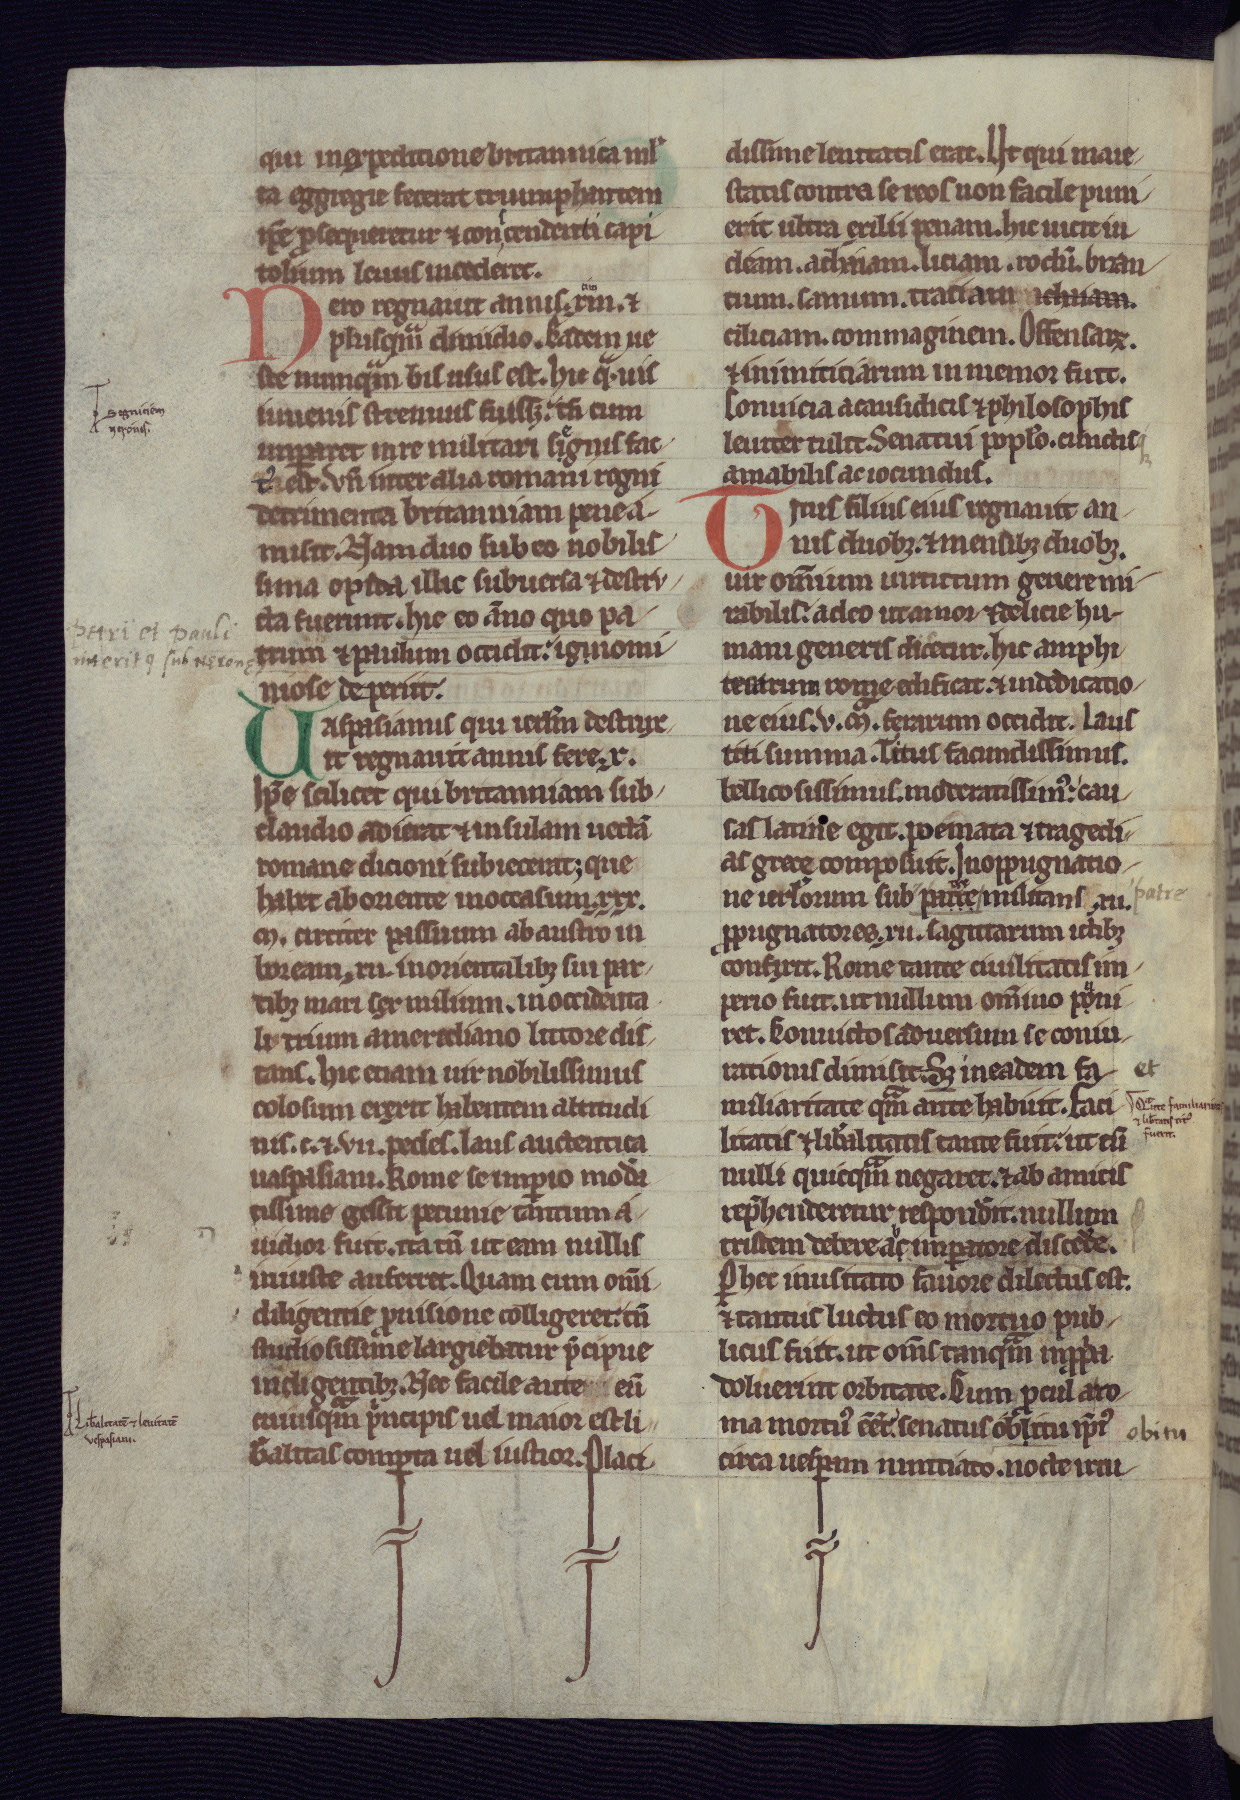 qui inexpeditione britannica ml̄
ta eggregie fecerat triumphantem
ip̄e ꝓsequeretur ⁊ conscendenti capi
tolium leuus incederet.
Nero regnauit annis .xiii. ⁊
plusqͣm dimidio. Eadem ue
ste numqͣm bis usus est. hic qͣuis
iuuenis strenuus fuiss&. tn̄ cum
imꝑaret inre militari segnis fac
tꝰ est. vn̄ inter alia romani regni
detrimenta britanniam pene a
misit. Nam duo sub eo nobilis
sima opida illic subuersa ⁊ destru
cta fuerunt. hic eo āno quo pe
trum ⁊ paulum occidit. ignomi
niose deperiit.
Uaspasianus qui ierl̄m destrux
it regnauit annis fere .x.
Ip̄e scilicet qui britanniam sub
claudio adierat ⁊ insulam uectā
romane dicioni subiecerat; que
habet ab oriente inoccasum .xxx.
m̄. circiter passuum ab austro in
boream .xii. inorientalibꝫ sui par
tibꝫ mari sex milium. inoccidenta
li trium ameridiano littore dis
tans. hic etiam uir nobilissimus
colosum erexit habentem altitudi
nis .c. ⁊ .vii. pedes. laus autentica
uaspasiani. Rome se imꝑio mod̄a
tissime gessit pecunie tantum a
uidior fuit. ita tn̄ ut eam nullis
iniuste auferret. Quam cum om̄i
diligentie ꝓuisione colligeret. tn̄
studiosissime largiebatur p̄cipue
indigentibꝫ. Nec facile ante eū
cuiusqͣm pͥncipis uel maior est li
b̄alitas comꝑta uel iustior. Placi
dissime lenitatis erat. Ut qui maie
statis contra se reos non facile puni
erit ultra exilii penam. hic uicit iu
deam. achaiam. liciam. rodū. bizan
tium. samum. traciam achaiam.
ciliciam. commaginem. Offensarꝫ.
⁊ inimiticiarum inmemor fuit.
Conuicia acausidicis ⁊ philosophis
leuiter tulit. Senatui pop̄lo. cunctis
amabilis ac iocundus.
Titus filius eius regnauit an
nis duobꝫ. ⁊ mensibꝫ duobꝫ.
uir om̄ium uirtutum genere mi
rabilis. adeo ut amor ⁊ delicie hu
mani generis diceretur. hic amphi
teatrum rome edificat. ⁊ indedicatio
ne eius .v. m̄. ferarum occidit. laus
titi summa. Titus facundissimus.
bellicosissimus. moderatissimꝰ. cau
sas latine egit. poemata ⁊ tragedi
as grece composuit. Inoppugnatio
ne ierl̄orum sub patre militans .xii.
ꝓpugnatores .xii. sagittarum ictibꝫ
confixit. Rome tante ciuilitatis im
perio fuit. ut nullum om̄ino puni
ret. Conuictos adversum se coniu
rationis dimisit. Sꝫ ineadem fa
miliaritate qͣm ante habuit. Faci
litatis ⁊ lib̄alitatis tante fuit. ut cū
nulli quicqͣm negaret. ⁊ ab amicis
rep̄henderetur respondit. nullum
tristem debere ab imꝑatore disced̄e.
Ꝑ hec inusitato fauore dilectus est.
⁊ tantus luctus eo mortuo pub
licus fuit. ut om̄s tanqͣm inꝓpͥa
doluerint orbitate. Cum ꝓcul a ro
ma mortuꝰ eēt. senatus obitu ip̄iꝰ
circa uesꝑam nuntiato. nocte irru
Segniciem
neronis.
petri et pauli
interitꝰ sub nerone
Lib̄alitatē ⁊ lenitatē
vespasiani.
patre
et
Qͣnte familiaritatis
⁊ lib̄tatis titꝰ
fuerit.
obitu